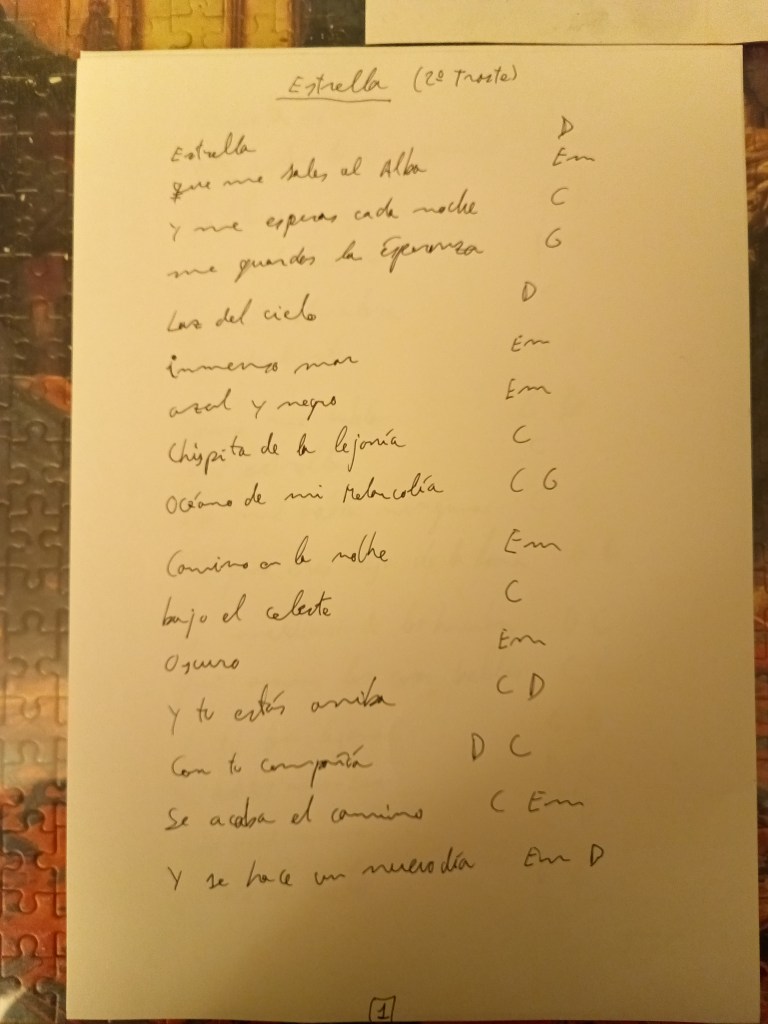 Estrella (2º Traste)
Estrella D
que me sales al Alba Em
Y me esperas cada noche C
me guardas la Esperanza G
Luz del cielo D
inmenso mar Em
azul y negro Em
Chispita de la lejanía C
Océano de mi Melancolía C G
Camino en la noche Em
bajo el celeste C
Oscuro Em
Y tu estás arriba C D
Con tu compañía D C
Se acaba el camino C Em
Y se hace un nuevo día Em D
1